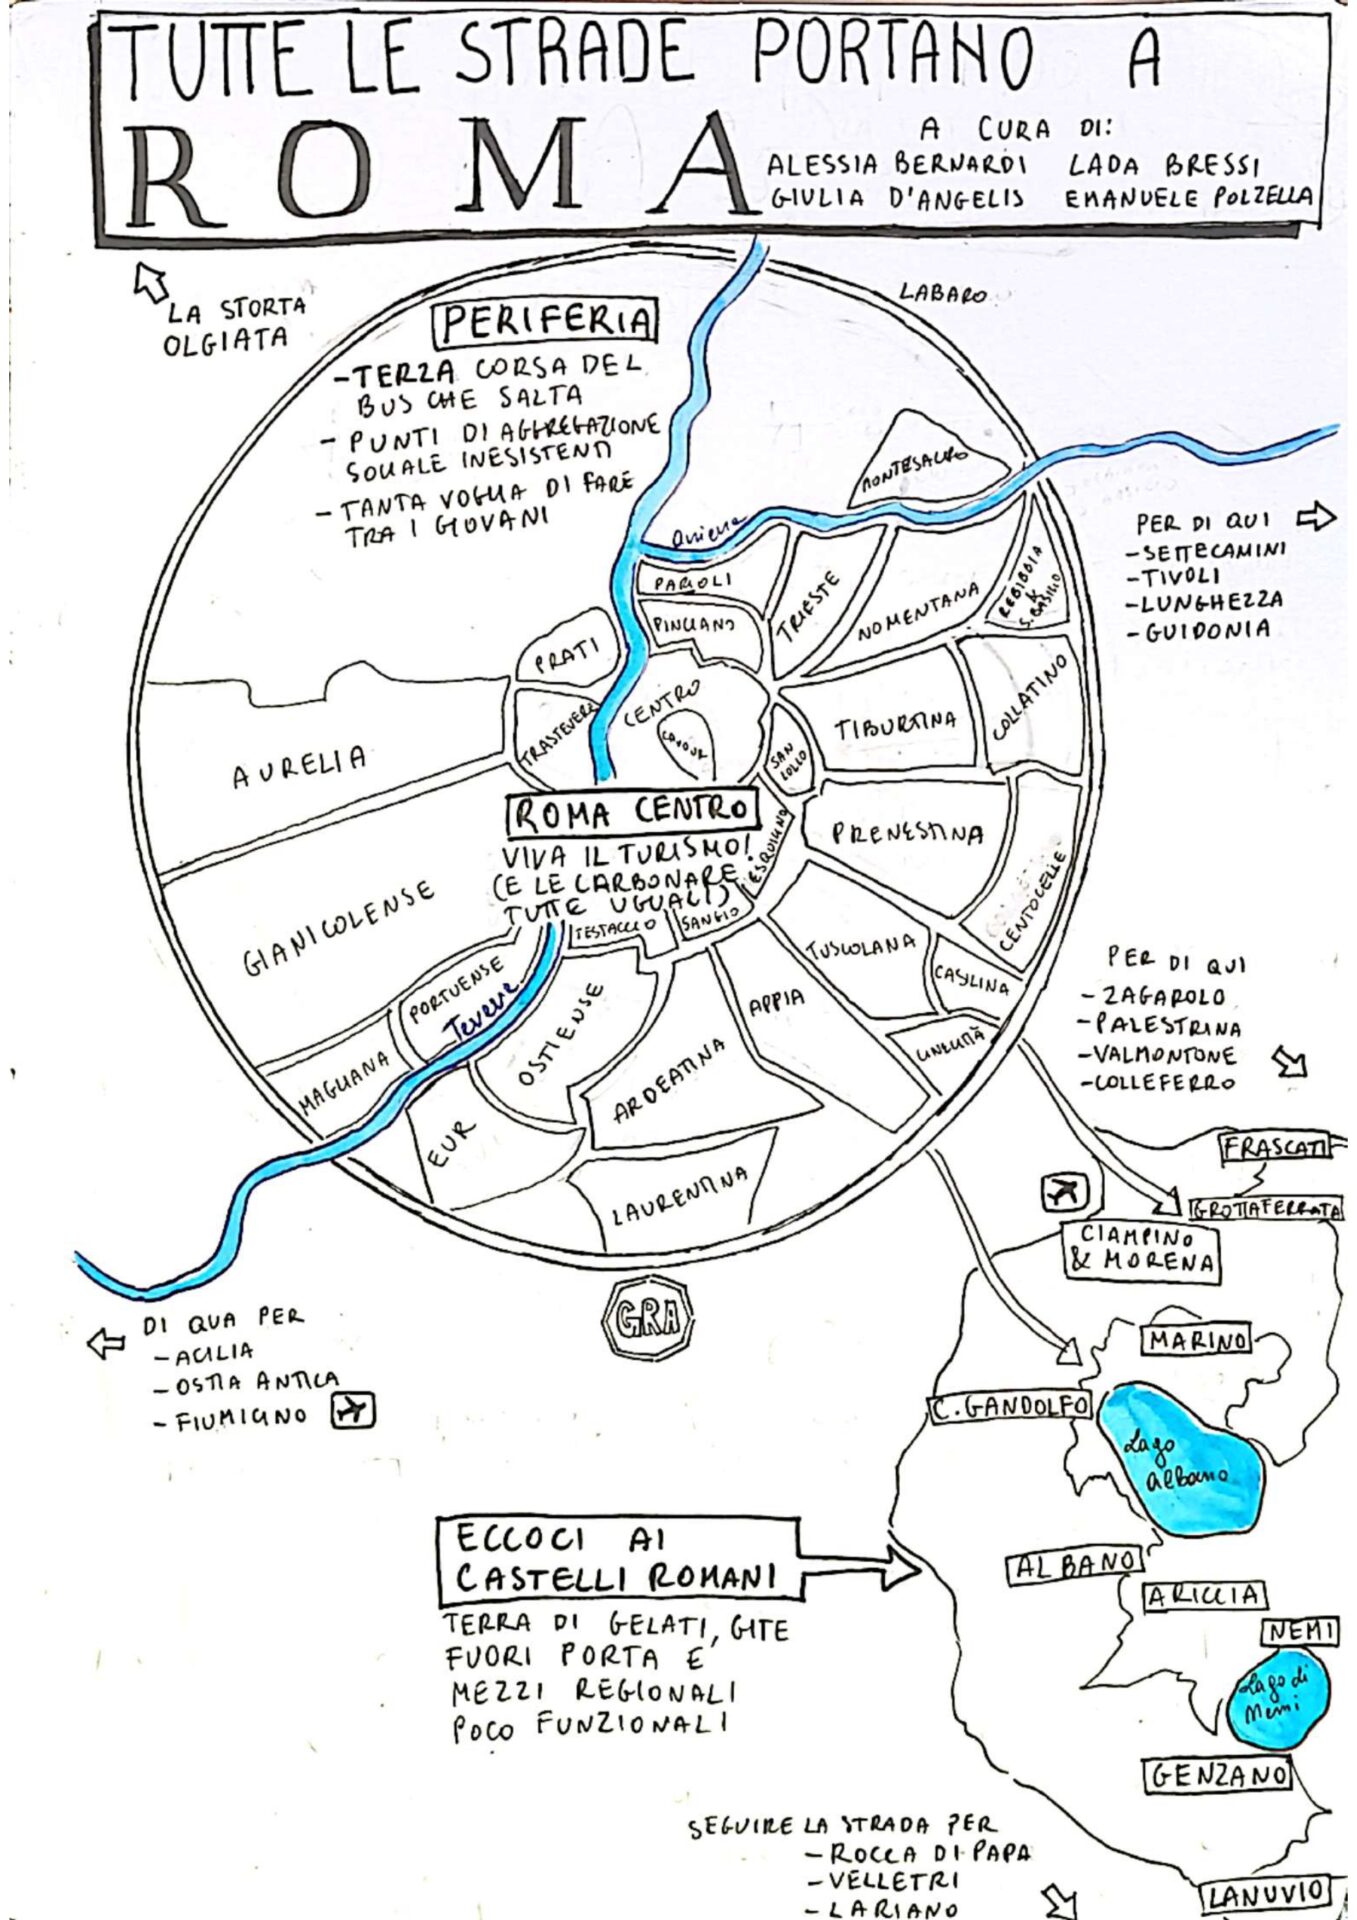 TUTTE LE STRADE PORTANO A
ROMA
A CURA DI:
ALESSIA BERNARDI LADA BRESSI
GIULIA D'ANGELIS EMANUELE POLZELLA
LA STORTA
OLGIATA
LABARO
PERIFERIA
-TERZA CORSA DEL
BUS CHE SALTA
- PUNTI DI AGGREGAZIONE
SOCIALE INESISTENTI
- TANTA VOGLIA DI FARE
TRA I GIOVANI
MONTESACRO
Aniene
PER DI QUI
-SETTECAMINI
-TIVOLI
-LUNGHEZZA
-GUIDONIA
PARIOLI
TRIESTE
NOMENTANA
REBIBBIA
&
S. BASILIO
PINCIANO
PRATI
CENTRO
TRASTEVERE
CAVOUR
SAN
LOLLO
TIBURTINA
COLLATINO
AURELIA
ROMA CENTRO
VIVA IL TURISMO!
(E LE CARBONARE
TUTTE UGUALI)
ESQUILINO
PRENESTINA
CENTOCELLE
GIANICOLENSE
TESTACCIO
SANGIO
TUSCOLANA
CASILINA
PORTUENSE
Tevere
OSTIENSE
APPIA
CINECITTÀ
MAGLIANA
ARDEATINA
EUR
LAURENTINA
PER DI QUI
- ZAGAROLO
-PALESTRINA
-VALMONTONE
-COLLEFERRO
FRASCATI
GROTTAFERRATA
CIAMPINO
& MORENA
GRA
DI QUA PER
- ACILIA
- OSTIA ANTICA
- FIUMICINO
MARINO
C. GANDOLFO
Lago
Albano
ECCOCI AI
CASTELLI ROMANI
TERRA DI GELATI, GITE
FUORI PORTA E
MEZZI REGIONALI
POCO FUNZIONALI
ALBANO
ARICCIA
NEMI
Lago di
Nemi
GENZANO
SEGUIRE LA STRADA PER
- ROCCA DI PAPA
- VELLETRI
- LARIANO
LANUVIO